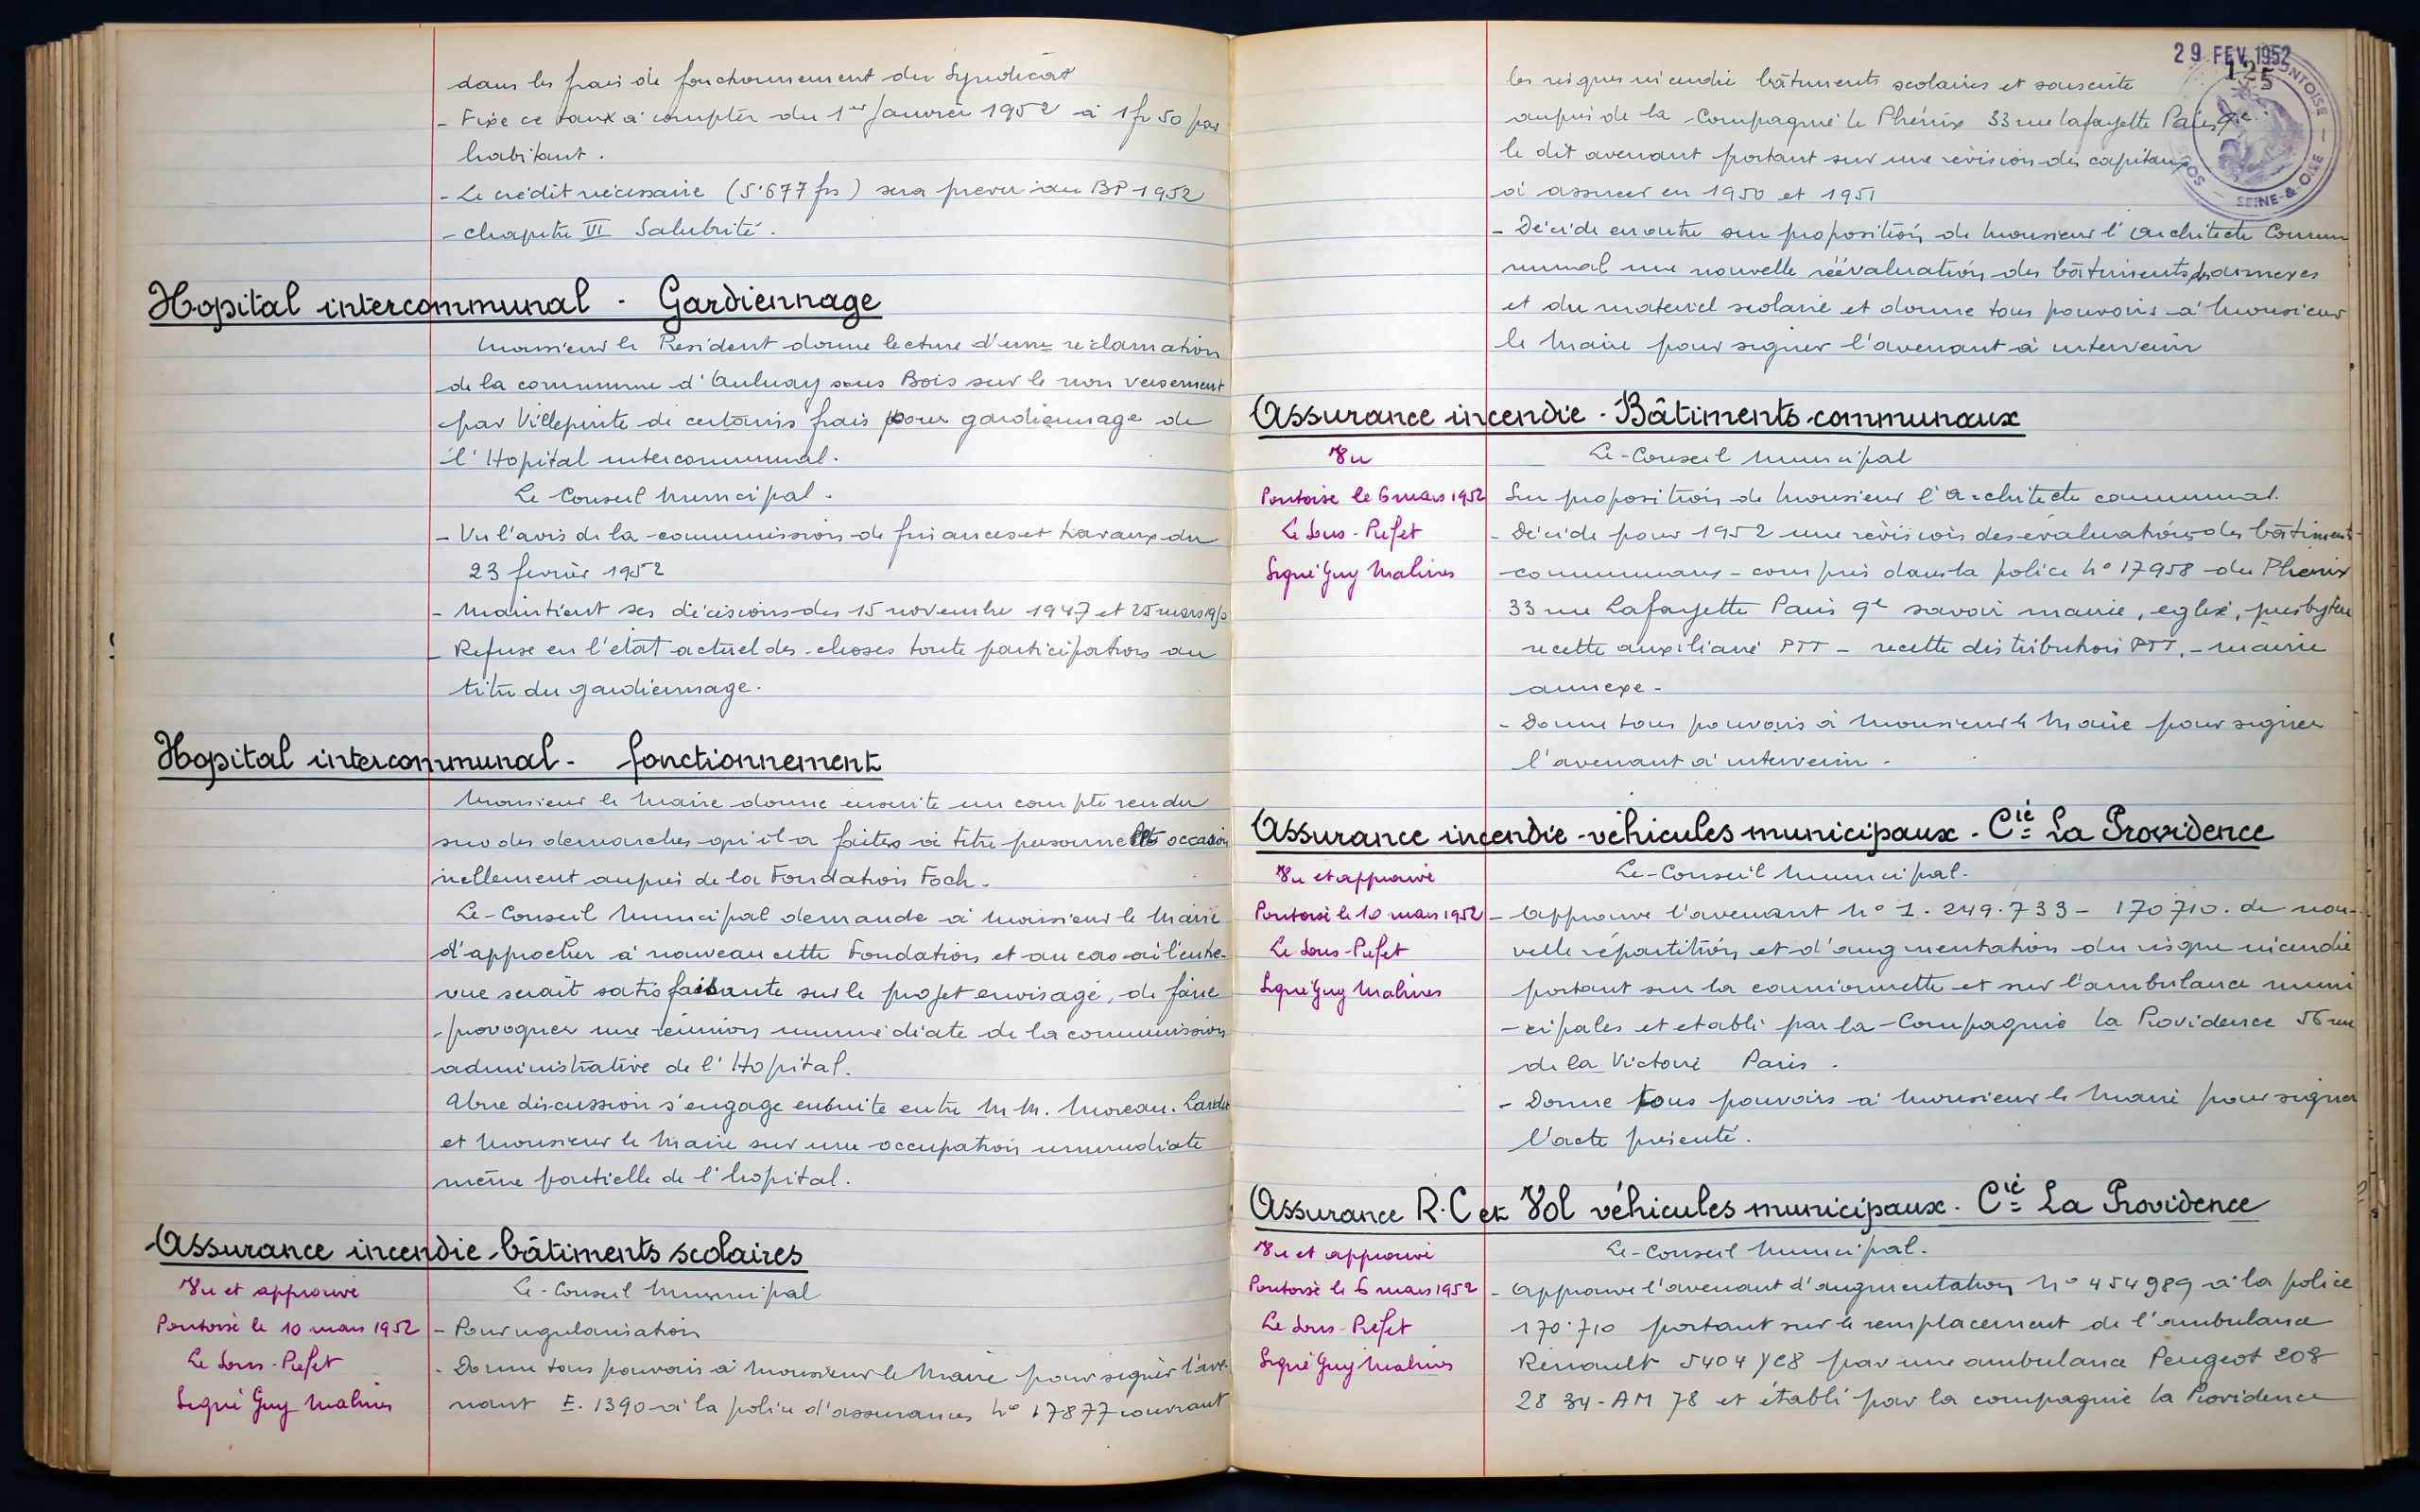 dans les frais de fonctionnement du Syndicat
- Fixe ce taux à compter du 1er Janvier 1952 à 1 fr 50 par
habitant.
- Le crédit nécessaire (5.677 frs) sera prévu au BP 1952
- chapitre VI Salubrité.
Hopital intercommunal - Gardiennage
Monsieur le Président donne lecture d'une réclamation
de la commune d'Aulnay sous Bois sur le non versement
par Villepinte de certains frais pour gardiennage de
l'Hopital intercommunal.
Le Conseil Municipal.
- Vu l'avis de la commission de finances et travaux du
23 février 1952
- Maintient ses décisions des 15 novembre 1947 et 25 mars
- Refuse en l'état actuel des choses toute participation au
titre du gardiennage.
Hopital intercommunal - fonctionnement
Monsieur le Maire donne ensuite un compte rendu
sur des démarches qu'il a faites à titre personnel et occasion
nellement auprès de la Fondation Foch.
Le Conseil Municipal demande à Monsieur le Maire
d'approcher à nouveau cette Fondation et au cas où l'entre-
vue serait satisfaisante sur le projet envisagé, de faire
provoquer une réunion immédiate de la commission
administrative de l'Hopital.
Une discussion s'engage ensuite entre M M. Moreau.
et Monsieur le Maire sur une occupation immédiate
même partielle de l'hopital.
Assurance incendie - bâtiments scolaires
Vu et approuvé
Le Conseil Municipal
Pontoise le 10 mars 1952
- Pour régularisation
Le Sous-Préfet
- Donne tous pouvoirs à Monsieur le Maire pour signer l'ave-
Signé Guy Malines
nant E. 1390 à la police d'assurances N° 17877 couvrant
29 FEV. 1952
125
PONTOISE
SOUS
SEINE-&-OISE
les risques incendie bâtiments scolaires et souscrite
auprès de la Compagnie le Phénix 33 rue Lafayette Paris 9e.
le dit avenant portant sur une révision des capitaux
à assurer en 1950 et 1951
- Décide en outre sur proposition de Monsieur l'architecte Commu
nunal une nouvelle réévaluation des bâtiments, des annexes
et du matériel scolaire et donne tous pouvoirs à Monsieur
le Maire pour signer l'avenant à intervenir
Assurance incendie - Bâtiments communaux
Vu
Le Conseil Municipal
Pontoise le 6 mars 1952
Sur proposition de Monsieur l'architecte communal.
Le Sous-Préfet
- Décide pour 1952 une révision des évaluations des bâtiments
Signé Guy Malines
communaux - compris dans la police N° 17958 du Phénix
33 rue Lafayette Paris 9e savoir mairie, eglise, presbytère
recette auxiliaire PTT - recette distribution PTT, - mairie
annexe -
- Donne tous pouvoirs à Monsieur le Maire pour signer
l'avenant à intervenir -
Assurance incendie - véhicules municipaux - Cie La Providence
Vu et approuvé
Le Conseil Municipal.
Pontoise le 10 mars 1952
- Approuve l'avenant N° 1.249.733 - 170710. de nou-
Le Sous-Préfet
velle répartition et d'augmentation du risque incendie
Signé Guy Malines
portant sur la camionnette et sur l'ambulance muni
- cipales et etabli par la Compagnie la Providence 56 rue
de la Victoire Paris.
- Donne tous pouvoirs à Monsieur le Maire pour signer
l'acte présenté.
Assurance R.C et Vol véhicules municipaux. Cie La Providence
Vu et approuvé
Le Conseil Municipal.
Pontoise le 6 mars 1952
- Approuve l'avenant d'augmentation N° 454989 à la police
Le Sous-Préfet
170.710 portant sur le remplacement de l'ambulance
Signé Guy Malines
Renault 5404 YC8 par une ambulance Peugeot 203
28 34-AM 78 et établi par la compagnie la Providence